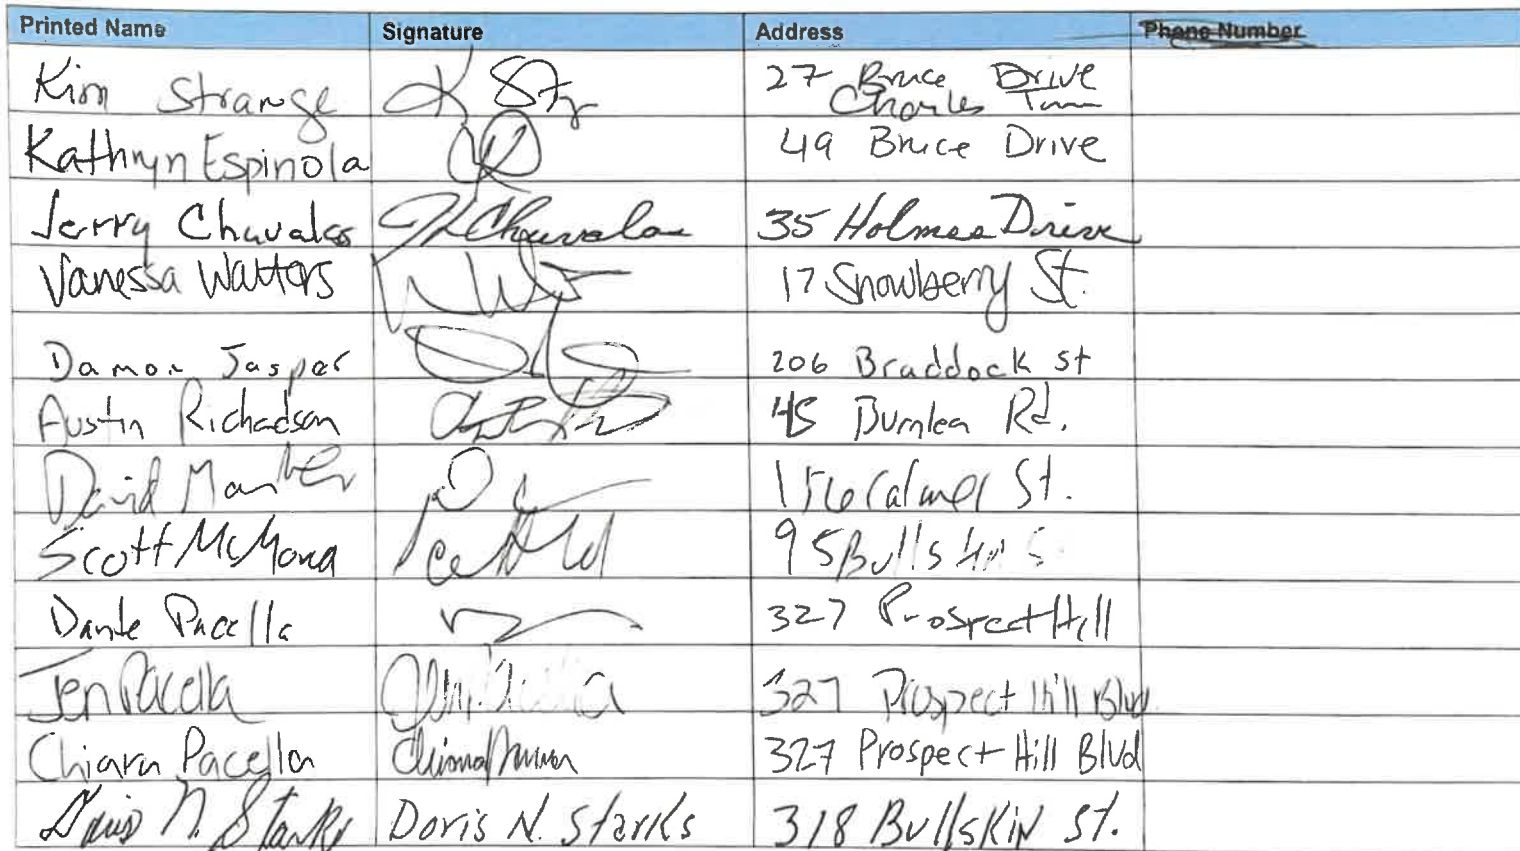 Printed Name Signature Address Phone Number
Kim Strange K Str 27 Bruce Drive
Charles Town
Kathryn Espinola 49 Bruce Drive
Jerry Chuvalas J Chuvalas 35 Holmes Drive
Vanessa Watters 17 Snowberry St.
Damon Jasper 206 Braddock st
Austin Richadson 45 Bumlea Rd.
David St.
Scott 95
Dante Pacella 327 Prospect Hill
Jen Pacella 327 Prospect Hill Blvd
Chiara Pacella 327 Prospect Hill Blvd
Doris N. Starks Doris N. Starks 318 BullsKiN St.